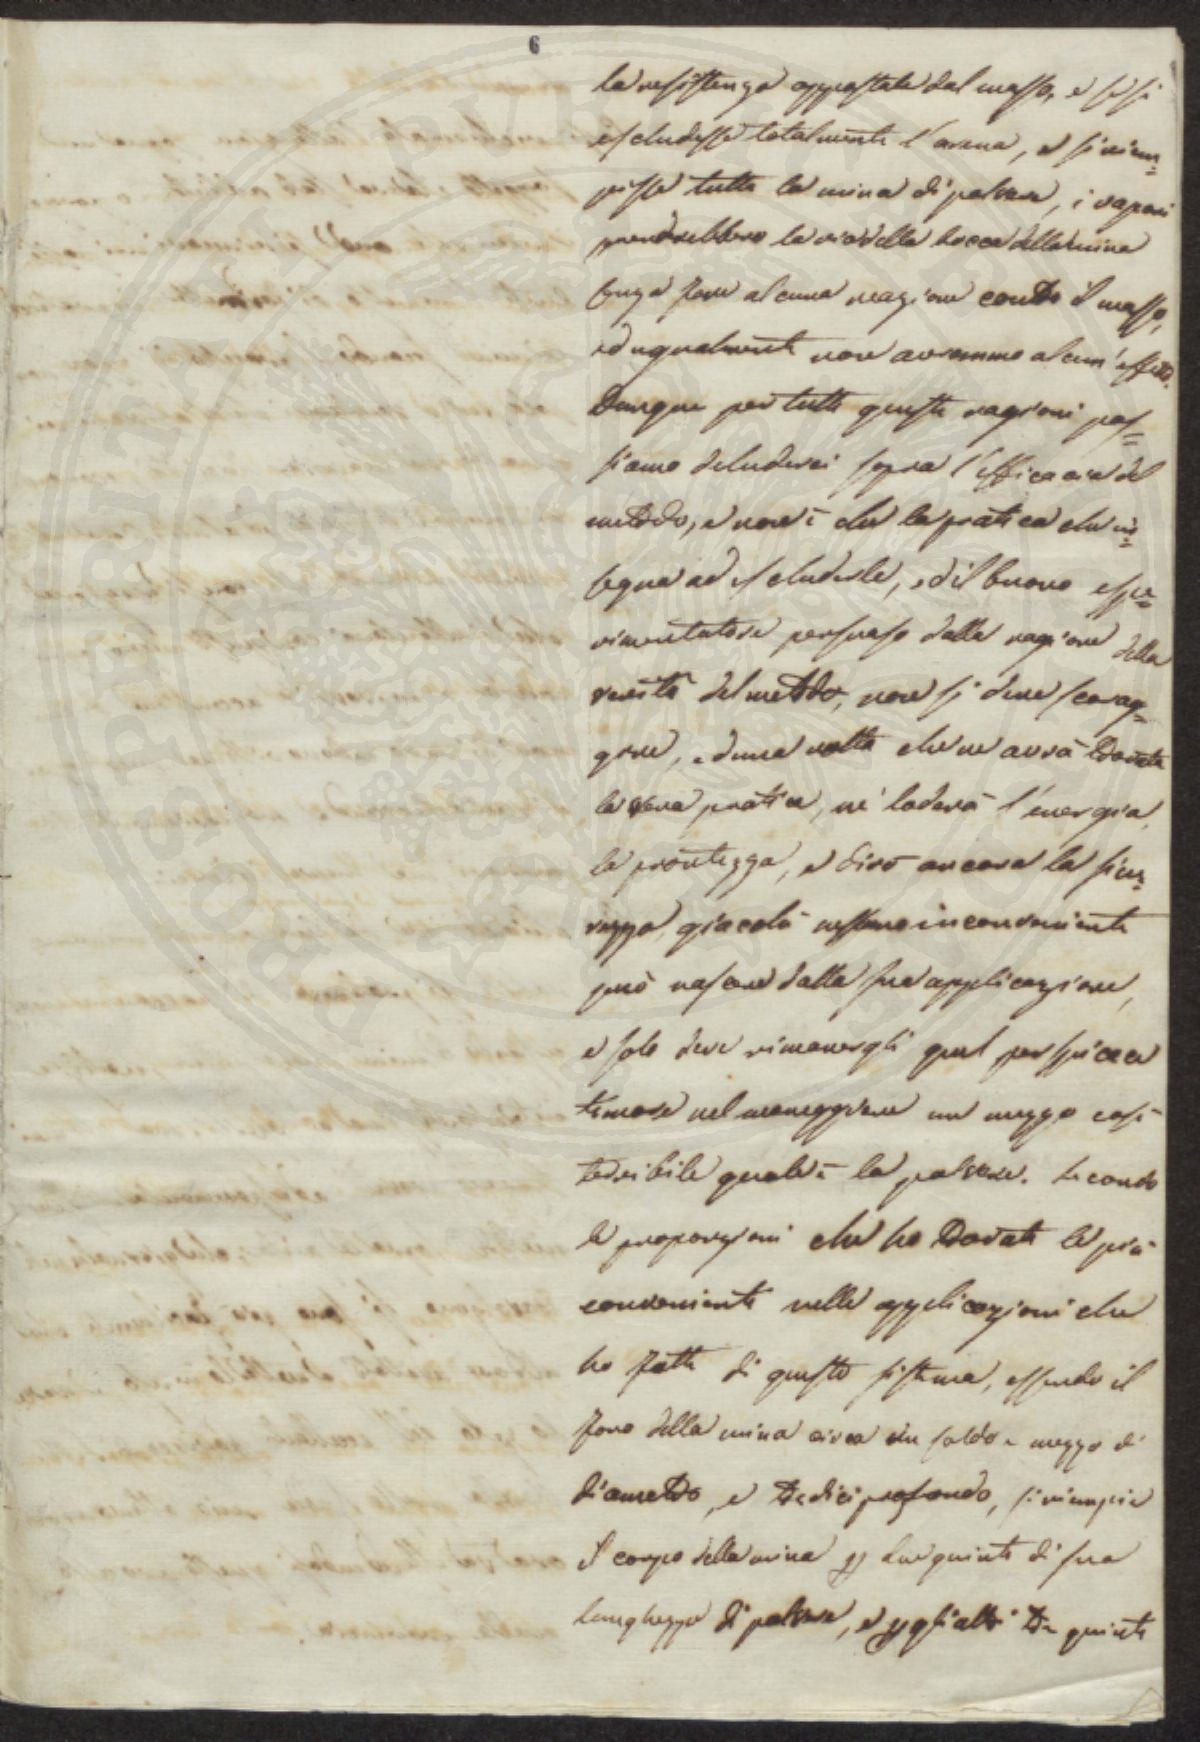 6
la resistenza oppostale dal masso, e se si
escludesse totalmente l'arena, e si riem=
pisse tutta la mina di polvere, i vapori
prenderebbero la via della bocca della mina
senza fare alcuna reazione contro il masso,
ed ugualmente non avremmo alcun' effetto.
Dunque per tutte queste ragioni pos=
siamo deluderci sopra l'efficacia del
metodo, e non è che la pratica che in=
segna ad escluderle, ed il buono espe=
rimentatore persuaso dalla ragione della
verità del metodo, non si deve scorag=
gire, ed una volta che ne avrà trovata
la vera pratica, ne loderà l'energia,
la prontezza, e dirò ancora la sicu=
rezza, giacchè nessuno inconveniente
può nascere dalla sua applicazione,
e solo deve rimanergli quel perspicace
timore nel maneggiare un mezzo così
terribile qual è la polvere. Secondo
le proporzioni che ho trovate le più
convenienti nelle applicazioni che
ho fatte di questo sistema, essendo il
foro della mina circa un soldo e mezzo di
diametro, e tredici profondo, si riempie
il corpo della mina p due quinti di sua
lunghezza di polvere, e p gli altri tre quinti
PUBLICAE
PROSPERITATI